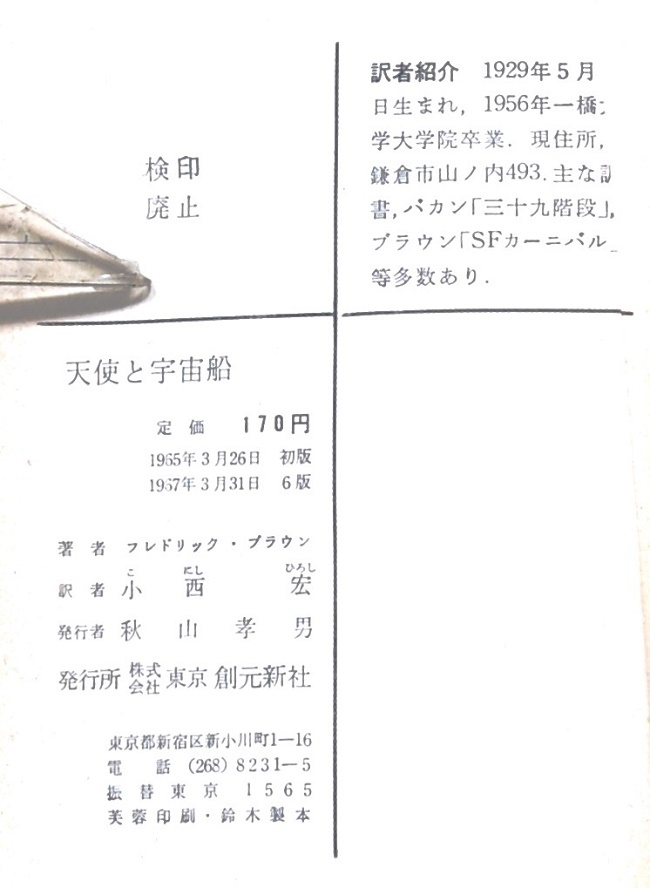 検印
廃止
訳者紹介 1929年5月
日生まれ，1956年一橋
学大学院卒業．現住所，
鎌倉市山ノ内493．主な
書，バカン「三十九階段」，
ブラウン「SFカーニバル
等多数あり．
天使と宇宙船
定価 170円
1965年3月26日 初版
1967年3月31日 6版
著者 フレドリック・ブラウン
こ にし ひろし
訳者 小西宏
発行者 秋山孝男
発行所 株式会社 東京創元新社
東京都新宿区新小川町1—16
電話 (268)8231—5
振替東京 1565
芙蓉印刷・鈴木製本